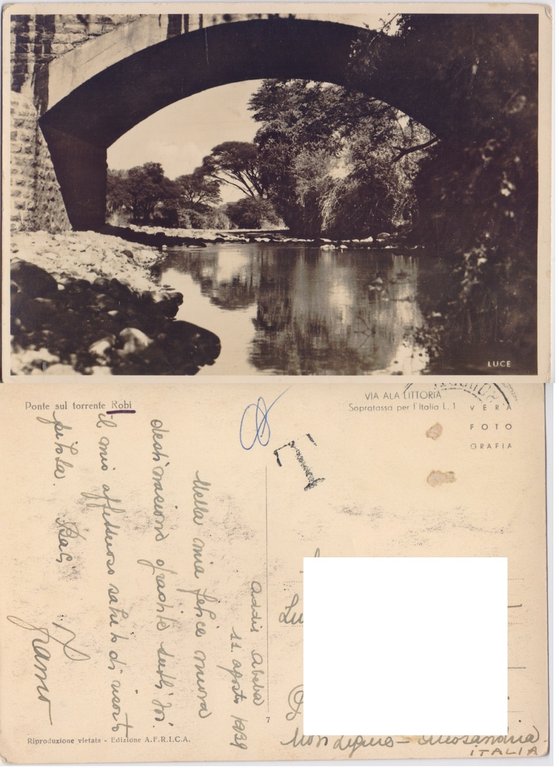 LUCE
Ponte sul torrente Robi
VIA ALA LITTORIA
Sopratassa per l'Italia L. 1
VERA
FOTO
GRAFIA
Addis Abeba
11 agosto 1939
Nella mia felice nuova
destinazione gradite tutti voi
il mio affettuoso saluto di
Baci
7
Riproduzione vietata - Edizione A.F.R.I.C.A.
ITALIA